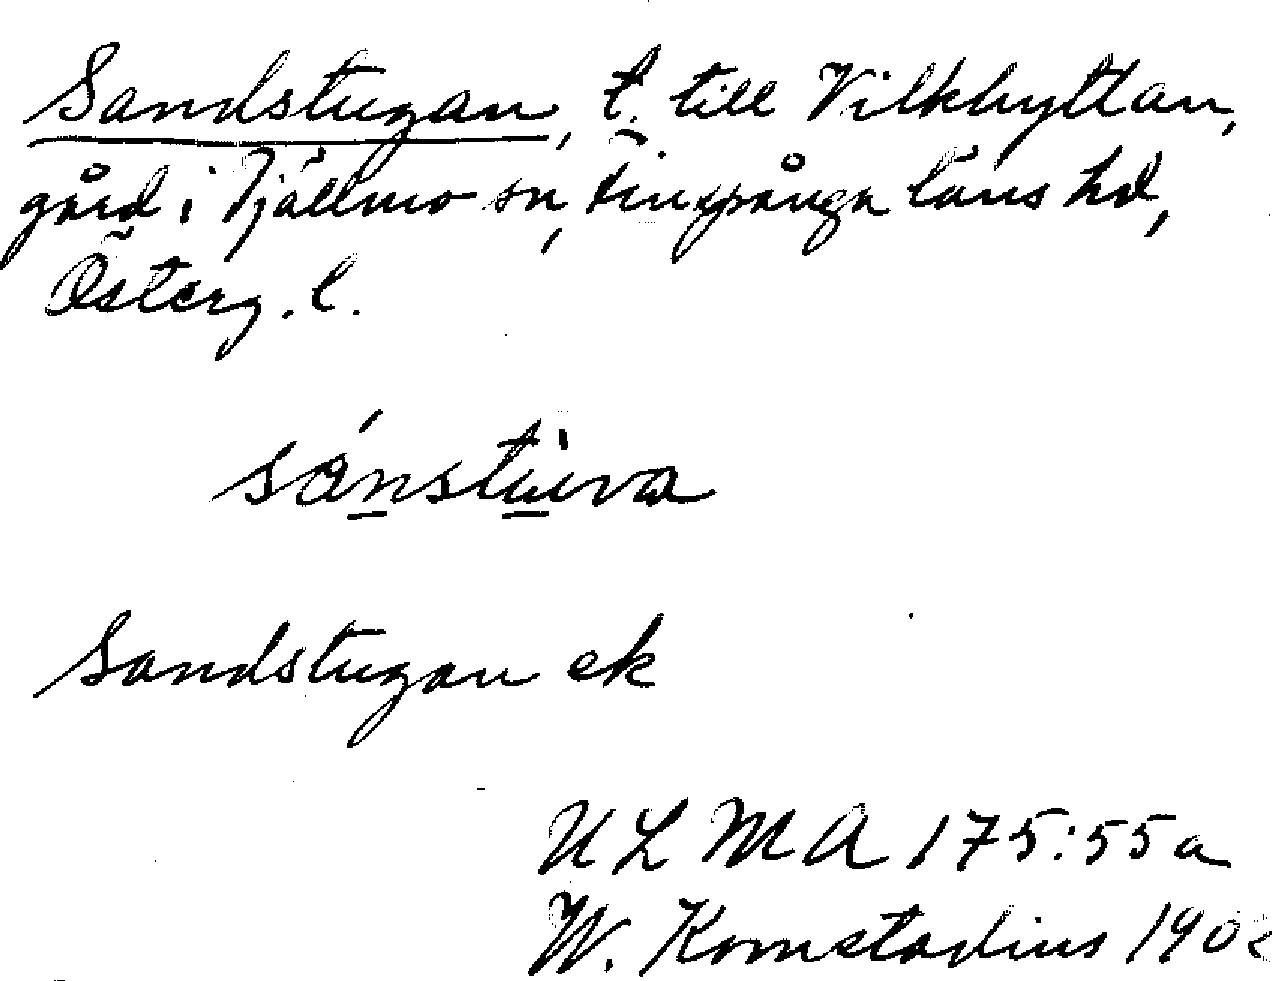 Sandstugan, t. till Vilkhyttan,
gård i Tjällmo sn, Finspånga läns hd,
Österg. l.
sánstùwa
Sandstugan ek
ULMA 175:55a
W. Komstadius